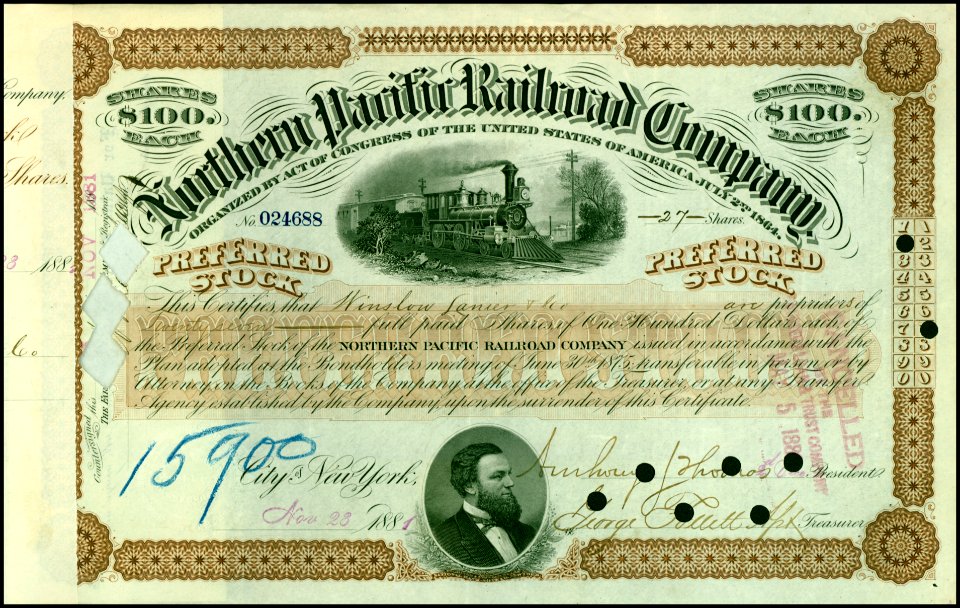 Company.
Shares.
SHARES
$100.
EACH
Northern Pacific Railroad Company,
SHARES
$100.
EACH
ORGANIZED BY ACT OF CONGRESS OF THE UNITED STATES OF AMERICA JULY 2ND 1864.
No. 024688
—27— Shares.
PREFERRED
STOCK
PREFERRED
STOCK
This Certifies that Winslow Lanier & Co are proprietors of
Twenty seven full paid Shares of One Hundred Dollars each of
the Preferred Stock of the NORTHERN PACIFIC RAILROAD COMPANY issued in accordance with the
Plan adopted at the Bondholders meeting of June 30th 1875 transferable in person or by
Attorney on the Books of the Company at the office of the Treasurer, or at any Transfer
Agency established by the Company, upon the surrender of this Certificate.
15900
City of New York,
Nov 23 1881
President.
George Treasurer
NOV 1881
Countersigned this
THE FAR
CANCELLED
THE
TRUST COMPANY
5
1 1
2
3 3
4 4
5 5
6 6
7
8 8
9 9
0 0